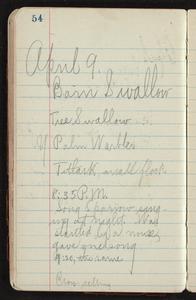 54
April 9.
Barn Swallow
Tree Swallow
Palm Warbler
Titlark, small flock
8:35 P.M.
Song Sparrow sing
ing at night. Was
started by a noise,
gave one song
9:30, the same